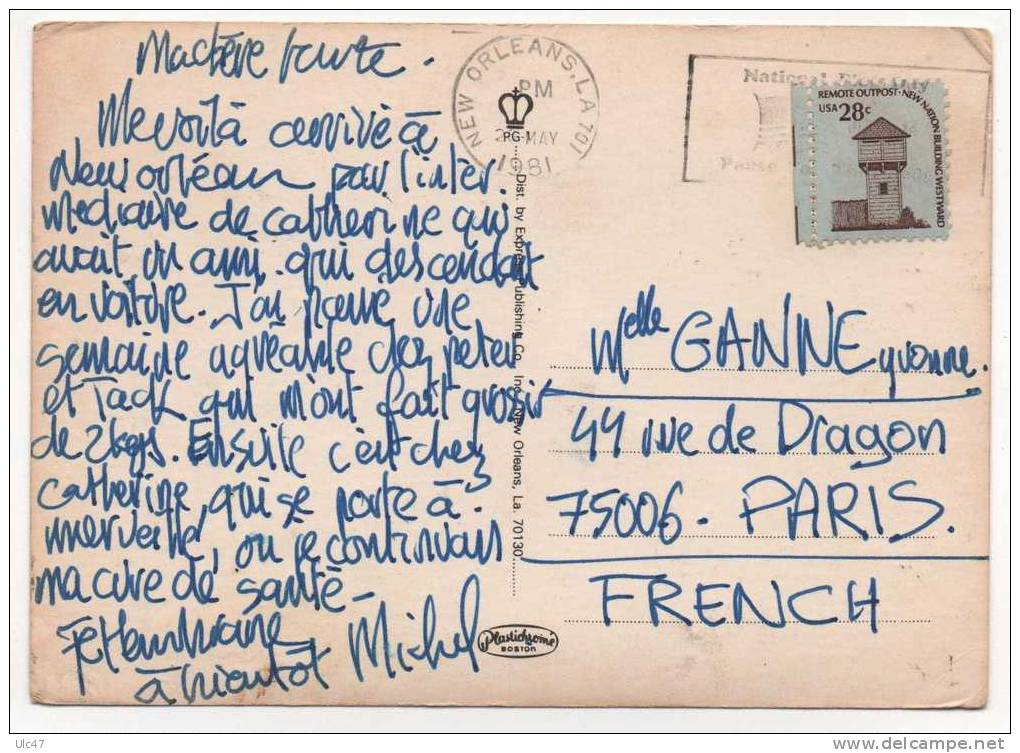 Ma chère tante.
Me voilà arrivé à
New orléan par l'inter.
mediaire de catherine qui
avait un ami, qui descendait
en voiture. J'ai passé une
semaine agréable chez peter
et Jack qui m'ont fait grossir
de 2 kgs. Ensuite c'est chez
catherine, qui se porte à
merveille, ou je continuais
ma cure de santé -
Je t'embrasse,
à bientôt Michel
NEW ORLEANS, LA 701
PM
MAY
1981
PG-1
Dist. by Express Publishing Co., Inc. New Orleans, La. 70130
Plastichrome
BOSTON
National
Pause
REMOTE OUTPOST · NEW NATION BUILDING WESTWARD
USA 28c
Melle GANNE yvonne.
44 rue de Dragon
75006 - PARIS.
FRENCH
Ulc47
delcampe.net